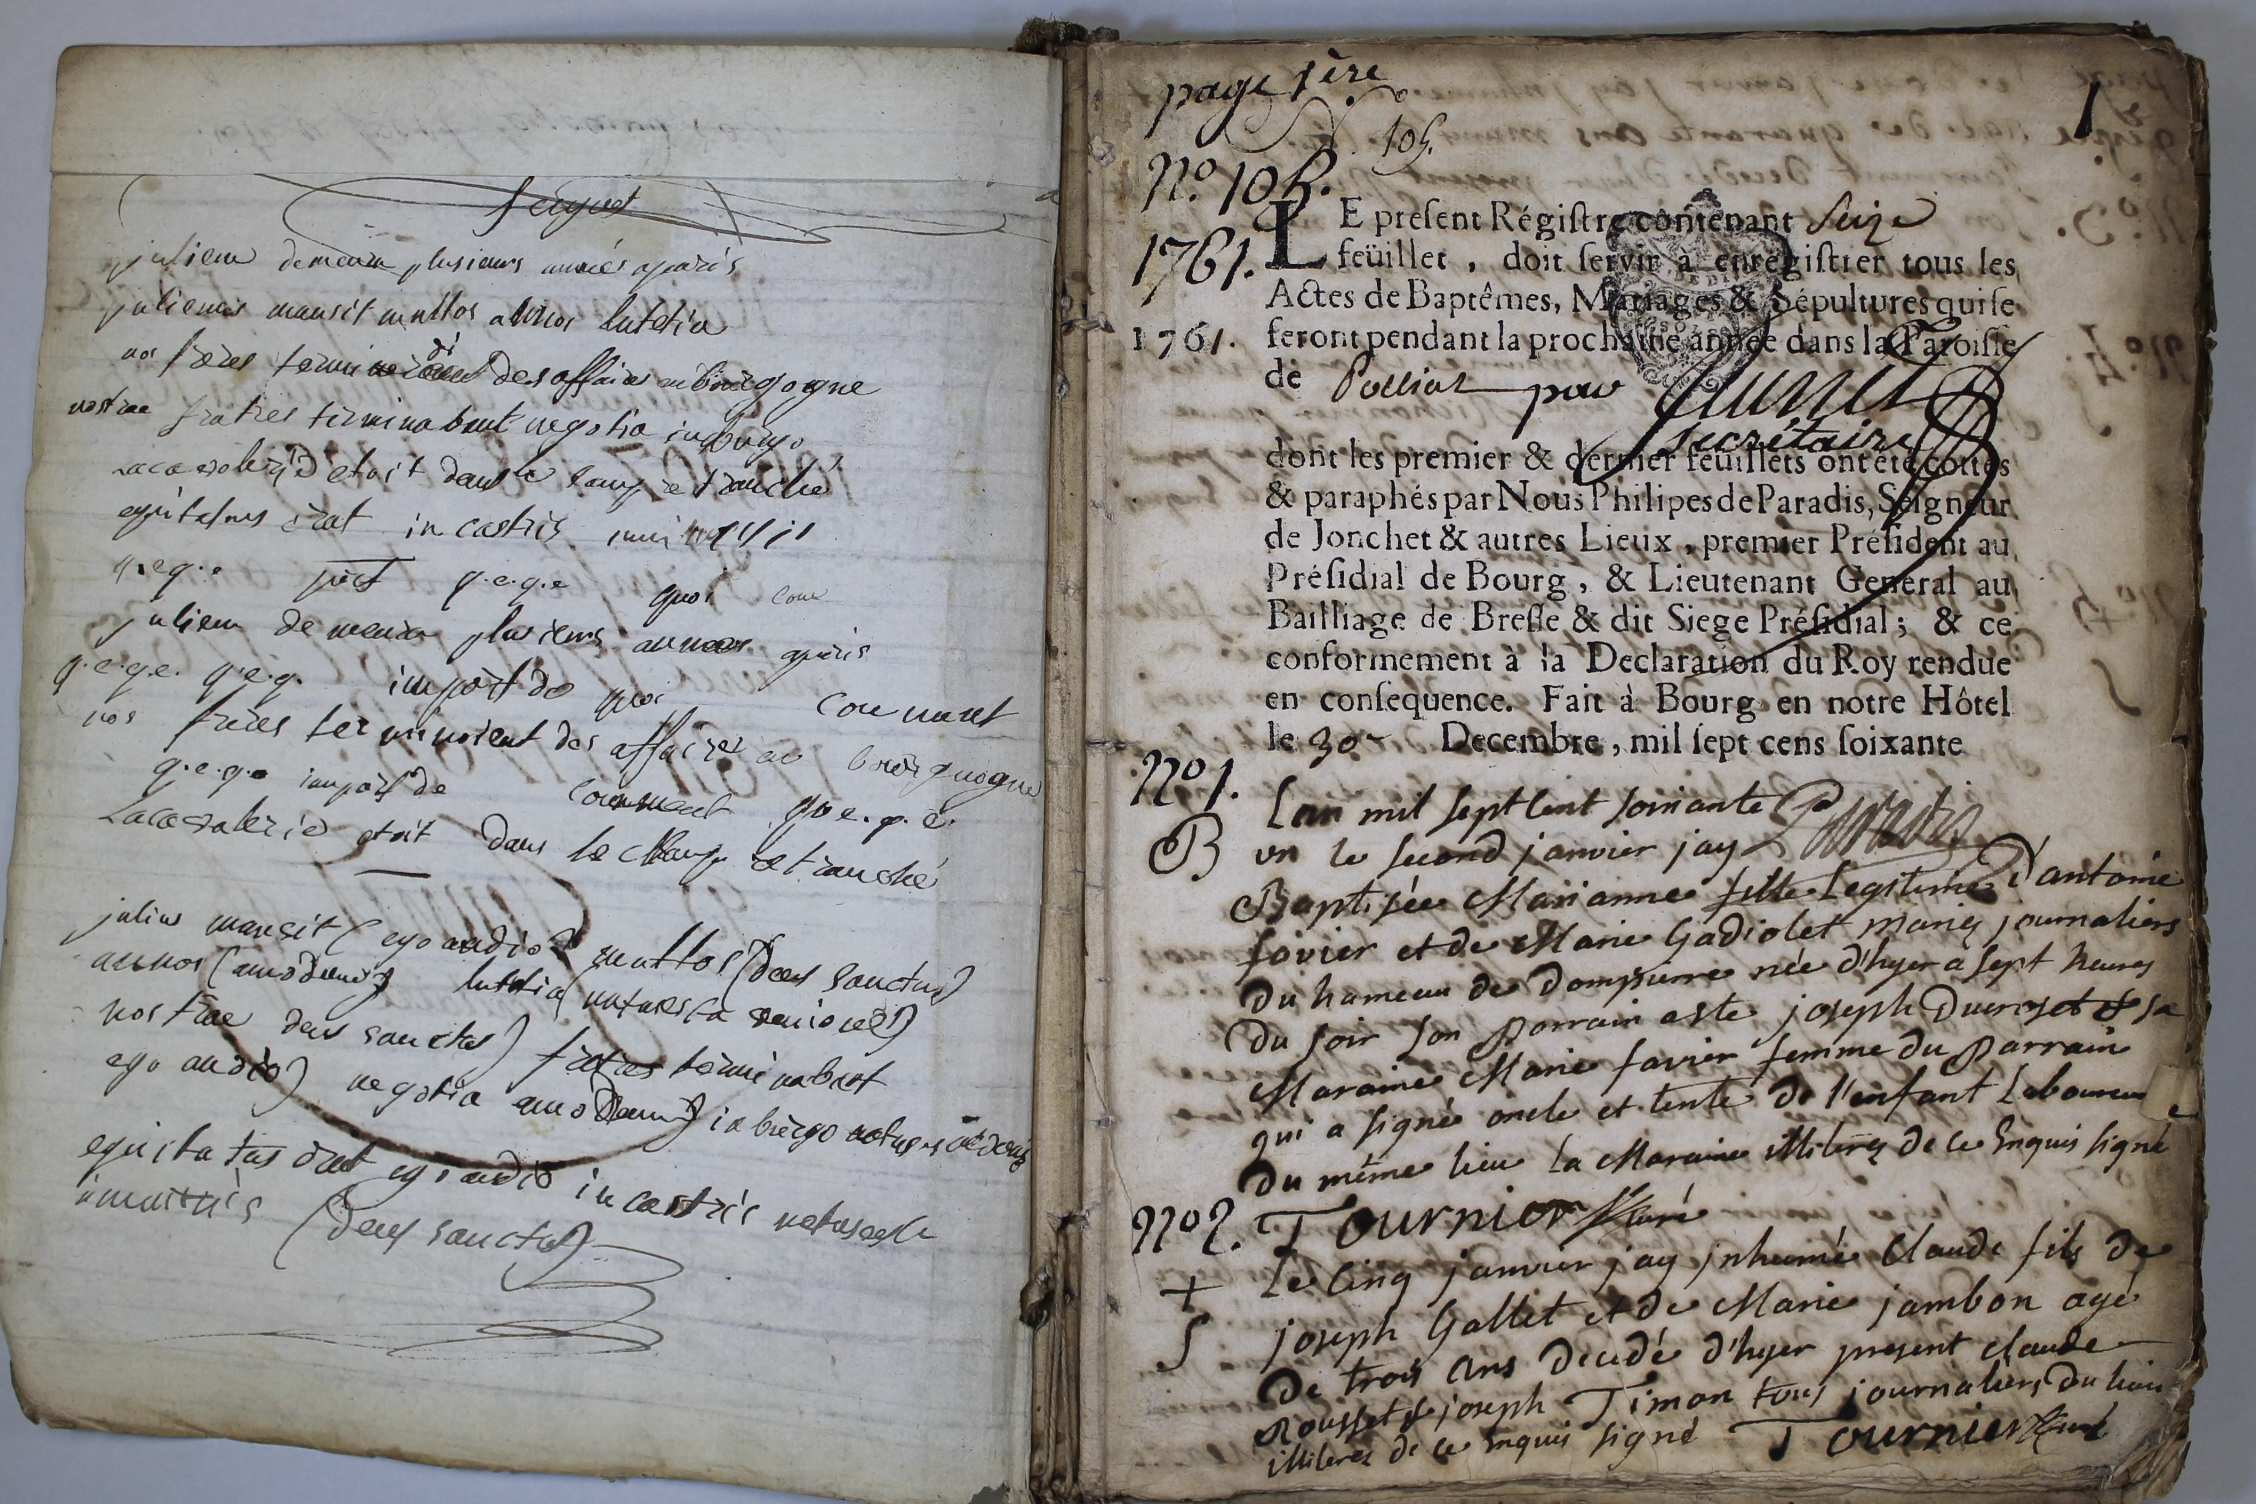 julien demeura plusieurs années a paris
julienus mansit multos annos lutetia
nos frères des affaires en bourgogne
nostrae fratres terminabant negotia in burgo
La cavalerie etoit dans le camp retranché
equitatus erat in castris
q.e.q.e quoi
julien demeura plusieurs années a paris
q.e.q.e. q.e.q. import de quoi comment
nos frères terminoient des affaires en bourguogne
q.e.q.e import de comment
La cavalerie etoit dans le champ retranché
julius mansit (ego audio) multos (deus sanctus)
annos lutetia
nostrae deus sanctus) fratres terminabant
ego audio) negotia in burgo
equitatus erat ego audio in castris
(deus sanctus)
page 1ère
1
105.
No. 105.
1761.
1761.
LE preſent Régiſtre contenant Seize
feüillet, doit ſervir à enregiſtrer tous les
Actes de Baptêmes, Mariages & Sépultures qui ſe
feront pendant la prochaine année dans la Paroiſſe
de Polliat pour
secrétaire
dont les premier & dernier feüillets ont été cottés
& paraphés par Nous Philipes de Paradis, Seigneur
de Jonchet & autres Lieux, premier Préſident au
Préſidial de Bourg, & Lieutenant General au
Bailliage de Breſſe & dit Siege Préſidial; & ce
conformement à la Declaration du Roy rendue
en conſequence. Fait à Bourg en notre Hôtel
le 30e Decembre, mil ſept cens ſoixante
No 1.
B
Lan mil sept cent soixante Paradis
un le second janvier jay
Baptisée Marianne fille Legitime d'antoine
favier et de Marie Gadiolet mariés journaliers
du hameau de Dompierre née d'hyer a sept heures
du soir son parrain a este joseph Ducroset & sa
Maraine Marie favier femme du parrain
qui a signé oncle et tente de l'enfant Laboureur
du même lieu la Maraine illiterée de ce Enquis signé
Tournier Curé
No 2.
+
S
Le Cinq janvier jay jnhumé Claude fils de
joseph Gallet et de Marie jambon agé
de trois Ans decedé d'hyer present claude
Rousset & joseph Timon tous journaliers du lieu
illiterez de ce enquis signé Tournier Curé